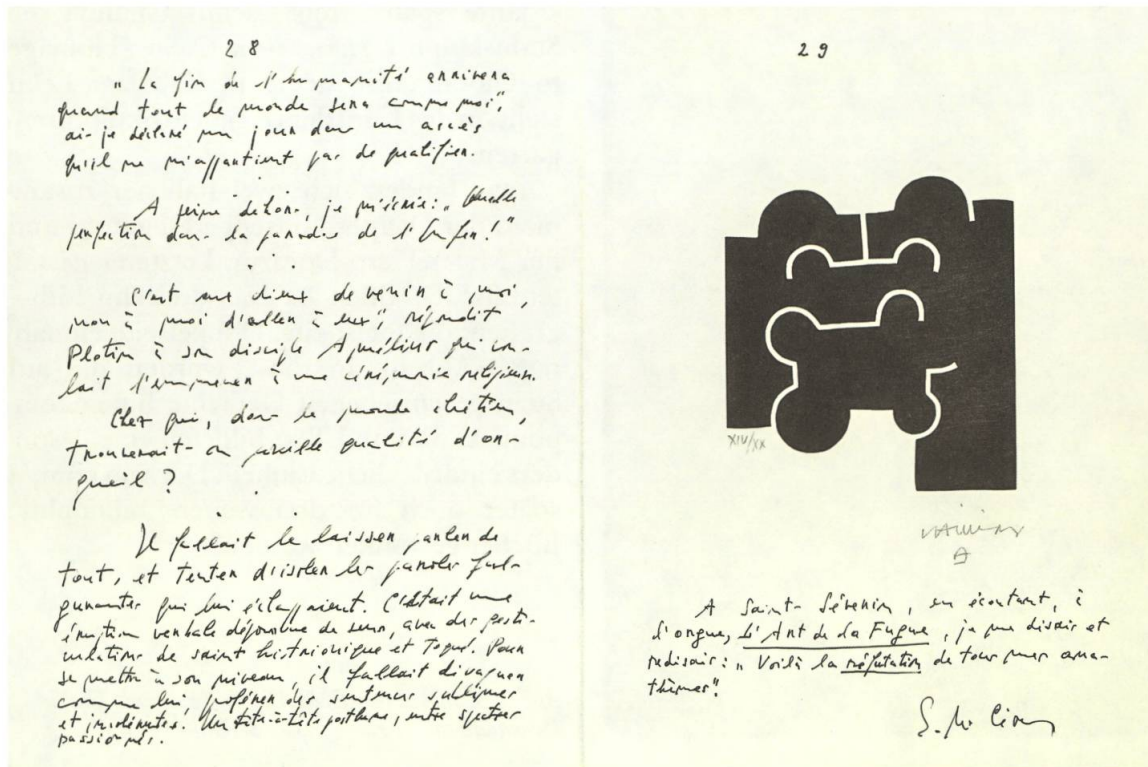 28
„ La fin de l'humanité arrivera
quand tout le monde sera comme moi",
ai-je déclaré un jour dans un accès
qu'il ne m'appartient pas de qualifier.
A peine dehors, je m'écrie: „ Quelle
perfection dans la parodie de l'Enfer!"
C'est aux dieux de venir à moi,
non à moi d'aller à eux", répondit
Plotin à son disciple Amélius qui vou-
lait l'emmener à une cérémonie religieuse.
Chez qui, dans le monde chrétien,
trouverait-on pareille qualité d'or-
gueil ?
Il fallait le laisser parler de
tout, et tenter d'isoler les paroles ful-
gurantes qui lui échappaient. C'était une
éruption verbale dépourvue de sens, avec des gesti-
culations de saint histrionique et toqué. Pour
se mettre à son niveau, il fallait divaguer
comme lui, proférer des sentences sublimes
et incohérentes. Un tête-à-tête posthume, entre spectres
passionnés.
29
XIV/XX
A Saint-Séverin, en écoutant, à
l'orgue, L'Art de la Fugue, je me disais et
redisais: „ Voilà la réfutation de tous mes ana-
thèmes".
E. M. Cioran